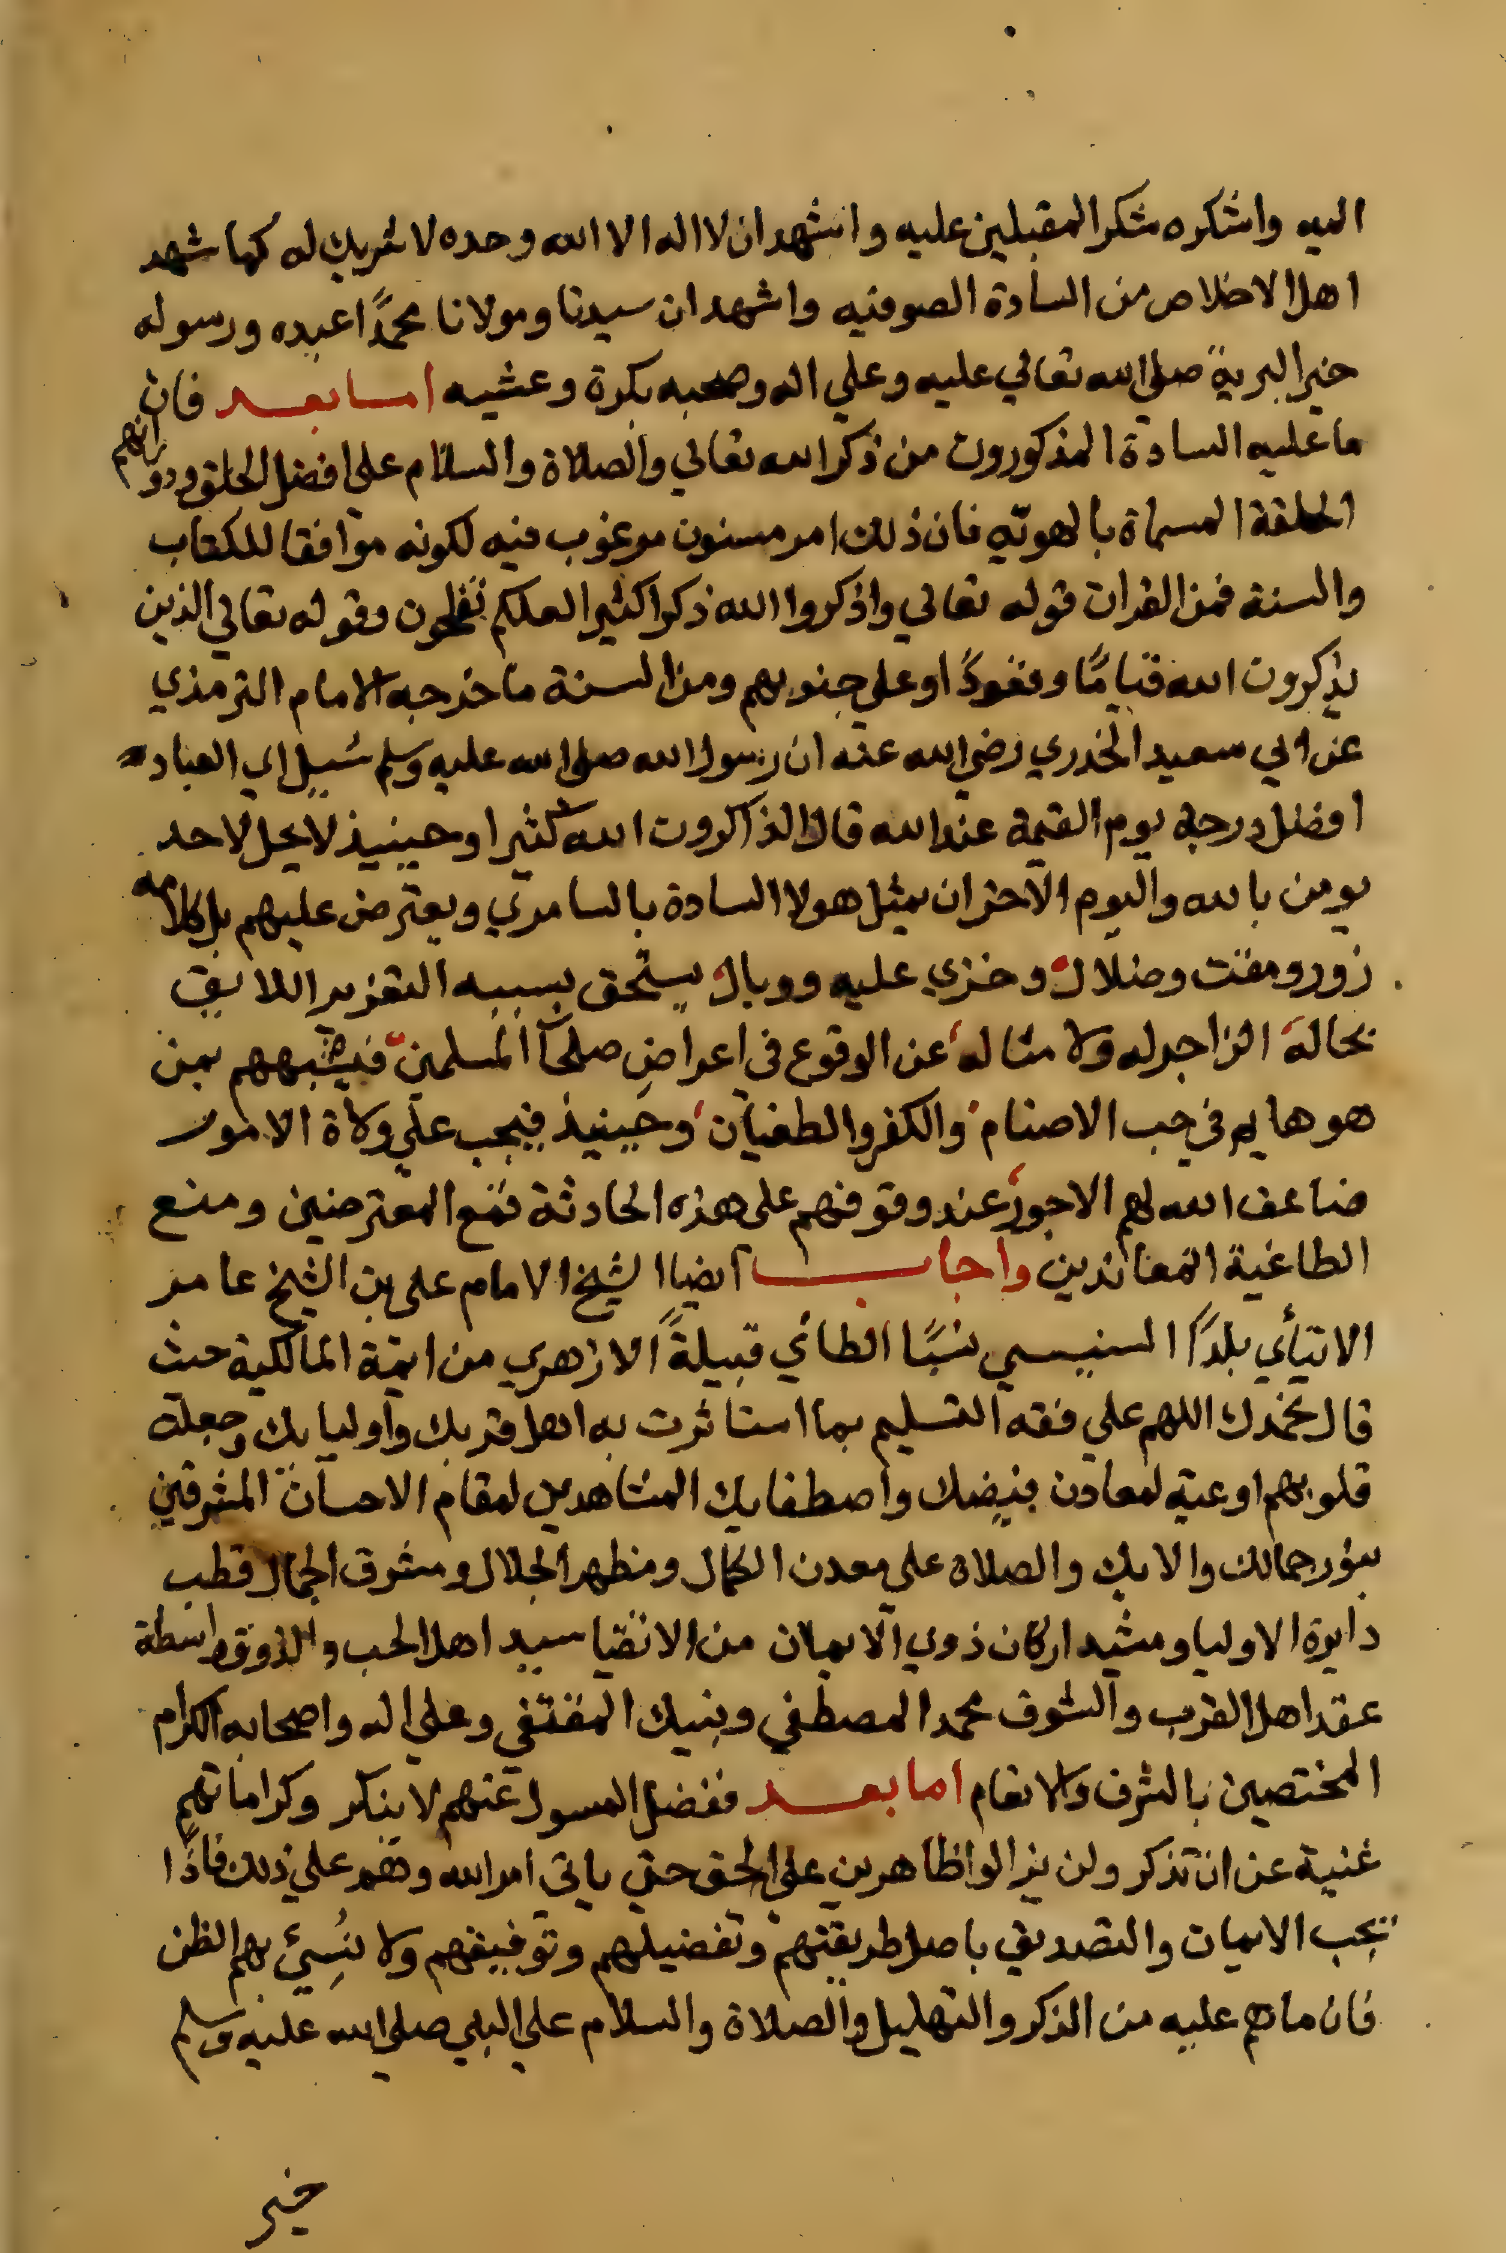 اليه واشكره شكر المقبلين عليه واشهد ان لا اله الا الله وحده لا شريك له كما شهد
اهل الاخلاص من السادة الصوفيه واشهد ان سيدنا ومولانا محمدًا عبده ورسوله
خير البرية صلى الله تعالي عليه وعلي اله وصحبه بكرة وعشيه اما بعد فان
ما عليه السادة المذكورون من ذكر الله تعالي والصلاة والسلام على افضل الخلق ودورانهم
الحلقة المسماة بالهويّه فان ذلك امر مسنون مرغوب فيه لكونه موافقا للكتاب
والسنة فمن القران قوله تعالي واذكروا الله ذكرا كثيرا لعلكم تفلحون وقوله تعالي الذين
يذكرون الله قيامًا وقعودًا وعلي جنوبهم ومن السنة ما خرجه الامام الترمذي
عن ابي سعيد الخدري رضي الله عنه ان رسول الله صلى الله عليه وسلم سُيل اي العباد
افضل درجة يوم القيمة عند الله قال الذاكرون الله كثيرا وحينيذ لا يحل لاحد
يومن بالله واليوم الاخر ان يمثل هولا السادة بالسامري ويعترض عليهم بل كلامه
زور ومقت وضلال وخزي عليه ووبال يستحق بسببه التعزير اللايق
بحاله الزاجر له ولامثاله عن الوقوع في اعراض صلحآ المسلمين فيشبههم بمن
هو هايم في حب الاصنام والكفر والطغيان وحينيذ فيجب علي ولاة الامور
ضاعف الله لهم الاجور عند وقوفهم على هذه الحادثة قمع المعترضين ومنع
الطاغية المعاندين واجاب ايضا الشيخ الامام على بن الشيخ عامر
الاتيأي بلدًا السنبسي نسبًا الطائي قبيلةً الازهري من ايمة المالكية حيث
قال نحمدك اللهم علي فقه التسليم بما استاثرت به اهل قربك واوليايك وجعلت
قلوبهم اوعية لمعادن فيضك واصطفايك المشاهدين لمقام الاحسان المشرقين
بنور جمالك والايك والصلاة علي معدن الكمال ومظهر الجلال ومشرق الجمال قطب
دايرة الاوليا ومشيد اركان ذوي الايمان من الاتقيا سيد اهل الحب والذوق واسطة
عقد اهل القرب والشوق محمد المصطفي ونبيك المقتفي وعلي اله واصحابه الكرام
المختصين بالشرف والانعام اما بعد ففضل المسول عنهم لا ينكر وكراماتهم
غنية عن ان تذكر ولن يزالوا ظاهرين على الحق حتي ياتي امر الله وهم علي ذلك فاذًا
يجب الايمان والتصديق باصل طريقتهم وتفضيلهم وتوفيقهم ولا نُسِيئ بهم الظن
فان ما هم عليه من الذكر والتهليل والصلاة والسلام على النبي صلى الله عليه وسلم
خير